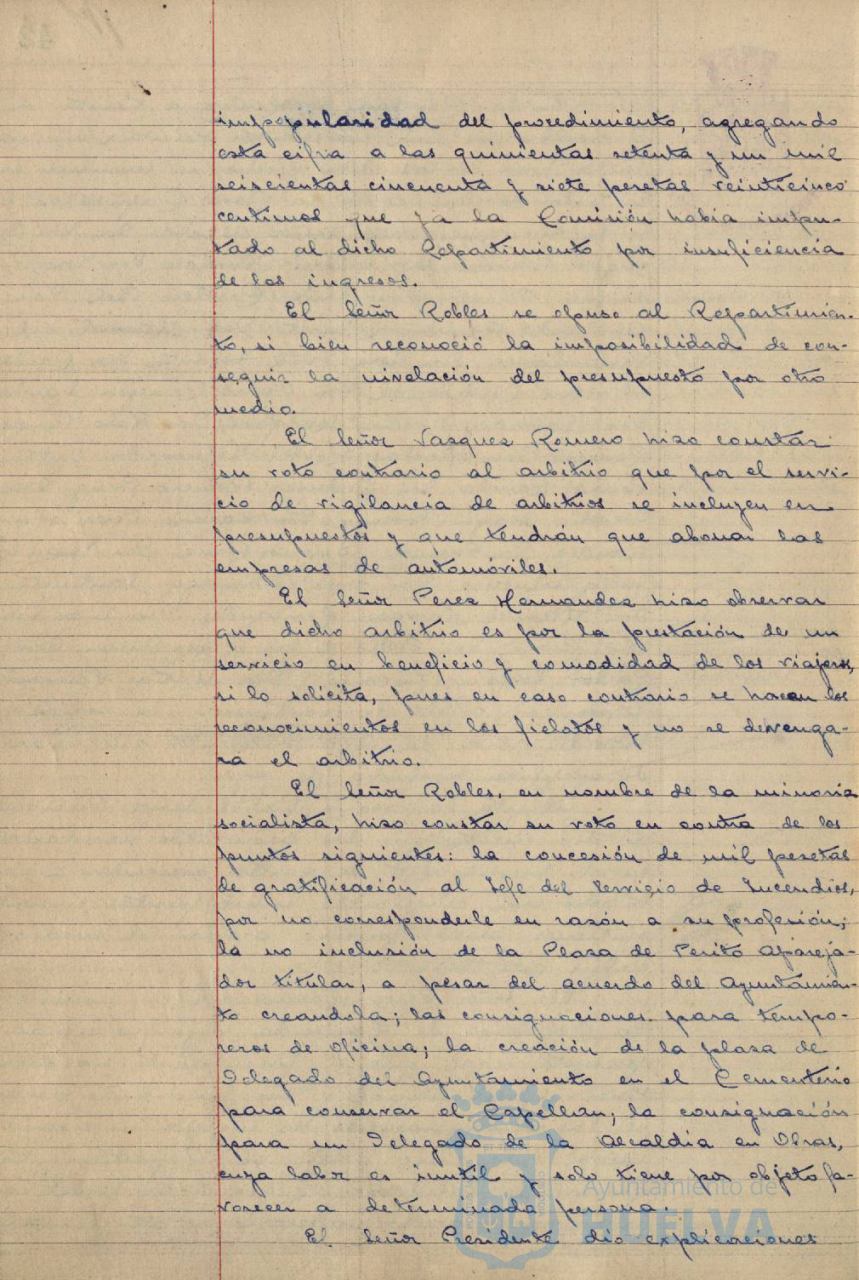 impopularidad del procedimiento, agregando
esta cifra a las quinientas setenta y un mil
seiscientas cincuenta y siete pesetas veinticinco
centimos que ya la Comisión habia impu-
tado al dicho Repartimiento por insuficiencia
de los ingresos.
El Señor Robles se opuso al Repartimien-
to, si bien reconoció la imposibilidad de con-
seguir la nivelación del presupuesto por otro
medio.
El Señor Vazquez Romero hizo constar
su voto contrario al arbitrio que por el servi-
cio de vigilancia de arbitrios se incluyen en
presupuestos y que tendrán que abonar las
empresas de automóviles.
El Señor Perez Hernandez hizo observar
que dicho arbitrio es por la prestación de un
servicio en beneficio y comodidad de los viajeros,
si lo solicita, pues en caso contrario se hacen los
reconocimientos en los fielatos y no se devenga-
ra el arbitrio.
El Señor Robles, en nombre de la minoria
socialista, hizo constar su voto en contra de los
puntos siguientes: la concesión de mil pesetas
de gratificación al Jefe del Servicio de Incendios,
por no corresponderle en razón a su profesión;
la no inclusión de la Plaza de Perito Apareja-
dor titular, a pesar del acuerdo del Ayuntamien-
to creandola; las consignaciones para tempo-
reros de oficina; la creación de la plaza de
Delegado del Ayuntamiento en el Cementerio
para conservar el Capellan; la consignación
para un Delegado de la Alcaldia en Obras,
cuya labor es inutil y solo tiene por objeto fa-
vorecer a determinada persona.
El Señor Presidente dió explicaciones
Ayuntamiento de
HUELVA